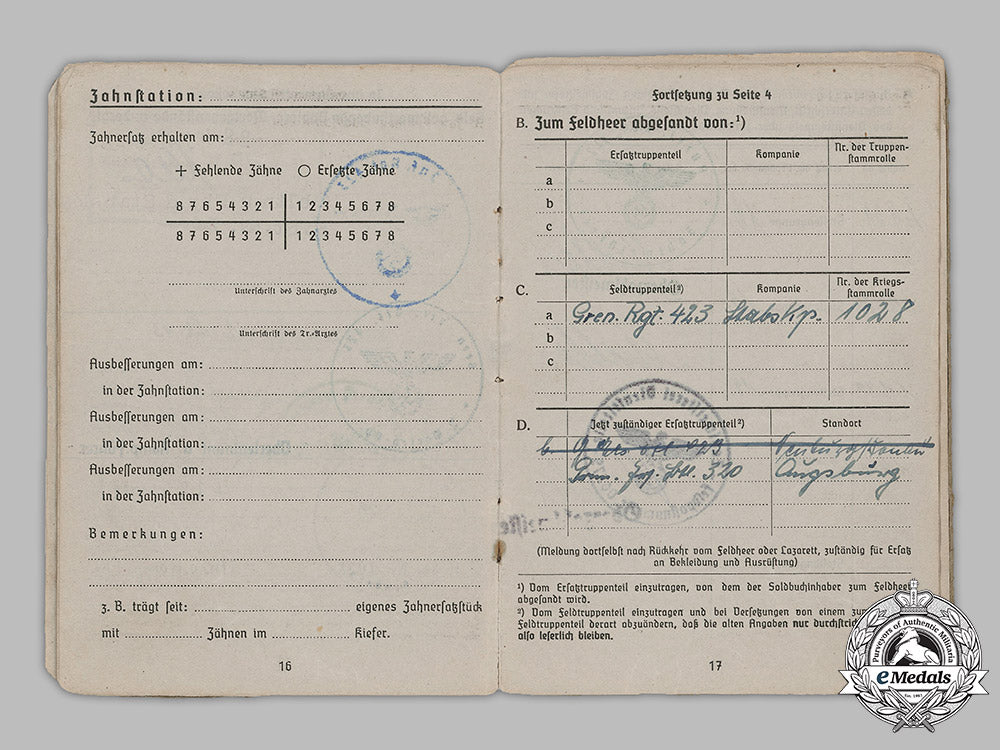 Zahnstation:
Zahnersatz erhalten am:
+ Fehlende Zähne ○ Ersetzte Zähne
8 7 6 5 4 3 2 1 | 1 2 3 4 5 6 7 8
8 7 6 5 4 3 2 1 | 1 2 3 4 5 6 7 8
Unterschrift des Zahnarztes
Unterschrift des Tr.-Arztes
Ausbesserungen am:
in der Zahnstation:
Ausbesserungen am:
in der Zahnstation:
Ausbesserungen am:
in der Zahnstation:
Bemerkungen:
z. B. trägt seit: eigenes Zahnersatzstück
mit Zähnen im Kiefer.
16
Fortsetzung zu Seite 4
B. Zum Feldheer abgesandt von:¹)
Ersatztruppenteil Kompanie Nr. der Truppen-
stammrolle
a
b
c
C. Feldtruppenteil²) Kompanie Nr. der Kriegs-
stammrolle
a Gren. Rgt. 423 Stabs Kp. 1028
b
c
D. Jetzt zuständiger Ersatztruppenteil²) Standort
423
320 Augsburg
(Meldung dortselbst nach Rückkehr vom Feldheer oder Lazarett, zuständig für Ersatz
an Bekleidung und Ausrüstung)
¹) Vom Ersatztruppenteil einzutragen, von dem der Soldbuchinhaber zum Feldheer
abgesandt wird.
²) Vom Feldtruppenteil einzutragen und bei Versetzungen von einem zum
Feldtruppenteil derart abzuändern, daß die alten Angaben nur durchstrichen
also leserlich bleiben.
17
Purveyors of Authentic Militaria
eMedals